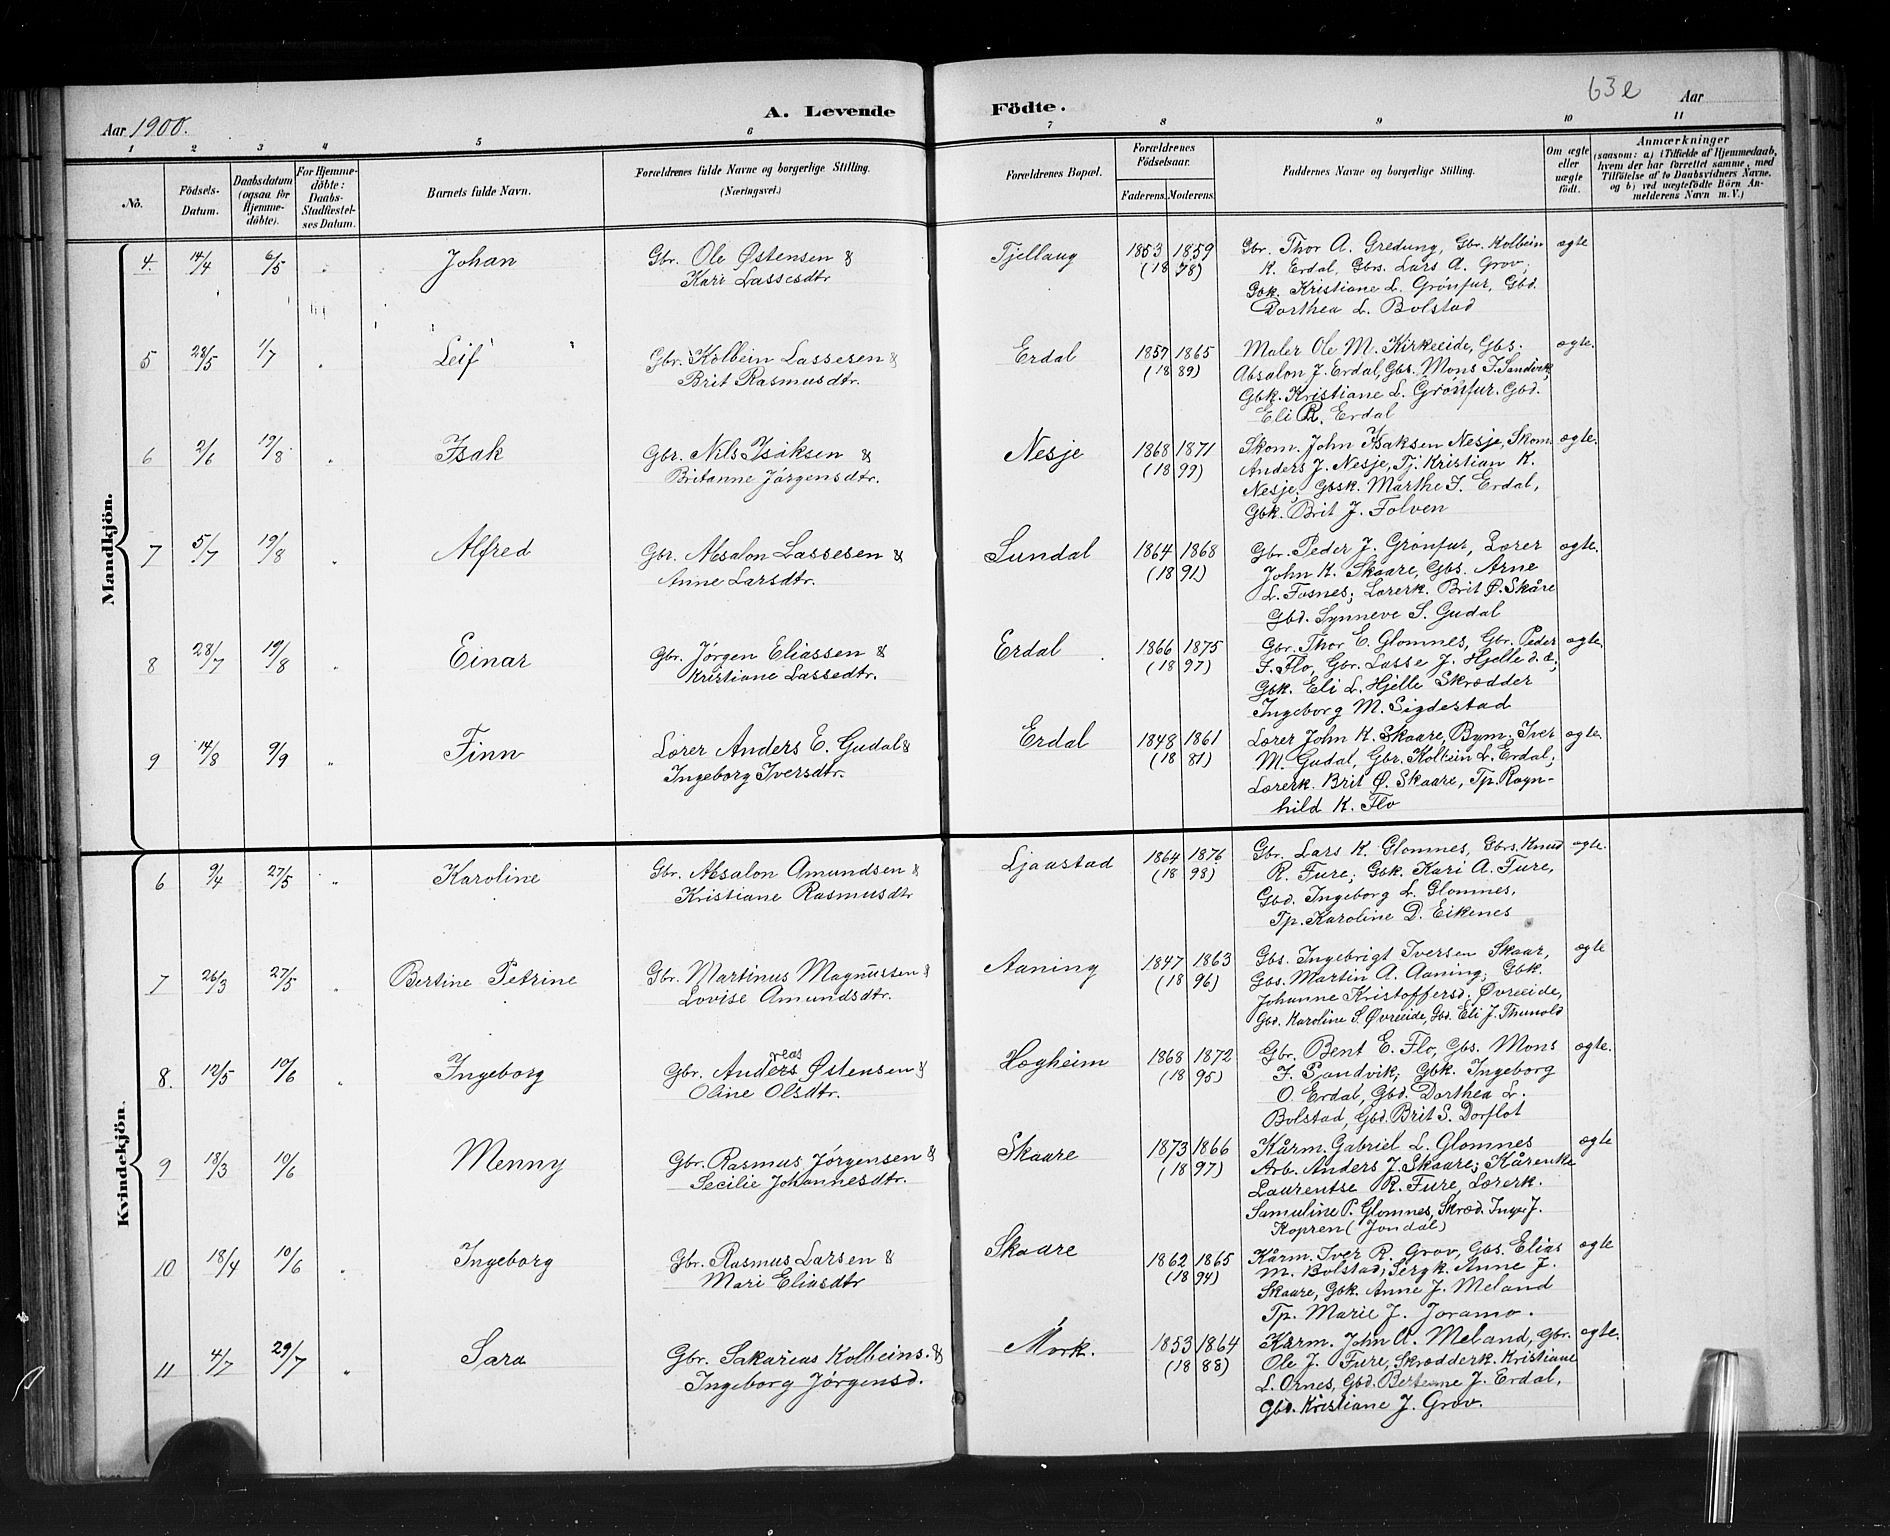 63e
Aar 1900. A. Levende Födte. Aar
1 2 3 4 5 6 7 8 9 10 11
No.
Födsels-
Datum.
Daabsdatum
(ogsaa for
Hjemme-
döbte).
For Hjemme-
döbte:
Daabs-
Stadfæstel-
ses Datum.
Barnets fulde Navn.
Forældrenes fulde Navne og borgerlige Stilling.
(Næringsvei.)
Forældrenes Bopæl.
Forældrenes
Födselsaar.
Faderens. Moderens.
Faddernes Navne og borgerlige Stilling.
Om ægte
eller
uægte
födt.
Anmærkninger
(saasom: a) i Tilfælde af Hjemmedaab,
hvem der har forrettet samme, med
Tilföielse af to Daabsvidners Navne.
og b) ved uægtefödte Börn An-
melderens Navn m. V.)
Mandkjön.
4. 14/4 6/5 " Johan Gbr. Ole Østensen & Tjellaug 1853 1859 Gbr. Thor A. Gredung, Gbr. Kolbein ægte
Kari Lassesdtr (18 78) K. Erdal, Gbrs. Lars A. Grov,
Gbk. Kristiane L. Grønfur, Gbd.
Dorthea L. Bolstad
5 28/5 1/7 " Leif Gbr. Kolbein Lassesen & Erdal 1857 1865 Maler Ole M. Kirkeeide, Gbs. ægte.
Brit Rasmusdtr. (18 89) Absalon J. Erdal, Gbs. Mons J. Sandvik,
Gbk. Kristiane L. Grønfur. Gbd.
Eli R. Erdal
6 2/6 19/8 " Isak Gbr. Nils Isaksen & Nesje 1868 1871 Skom. John Isaksen Nesje, Skom. ægte.
Britanne Jørgensdtr. (18 99) Anders J. Nesje, Tj. Kristian K.
Nesje; Gbsk. Marthe J. Erdal,
Gbk. Brit J. Folven
7 5/7 19/8 " Alfred Gbr. Absalon Lassesen & Sundal 1864 1868 Gbr. Peder J. Grønfur, Lærer ægte.
Anne Larsdtr. (18 91) John K. Skaare, Gbs. Arne
L. Fosnes; Lærerk. Brit Ø. Skåre
Gbd. Synneve S. Gudal
8 28/7 19/8 " Einar Gbr. Jørgen Eliassen & Erdal 1866 1875 Gbr. Thor E. Glomnes, Gbr. Peder ægte.
Kristiane Lassedtr. (18 97) J. Flo, Gbr. Lasse J. Hjelle d. æ;
Gbk. Eli L. Hjelle Skrædder
Ingeborg M. Sigdestad
9 14/8 9/9 " Finn Lærer Anders E. Gudal & Erdal 1848 1861 Lærer John K. Skaare, Bym. Iver ægte.
Ingeborg Iversdtr. (18 81) M. Gudal, Gbr. Kolbein L. Erdal;
Lærerk. Brit Ø. Skaare, Tp. Ragn-
hild K. Flo
Kvindekjön.
6 9/4 27/5 " Karoline Gbr. Absalon Amundsen & Ljaastad 1864 1876 Gbr. Lars K. Glomnes, Gbrs. Knud ægte.
Kristiane Rasmusdtr (18 98) R. Fure; Gbk. Kari A. Fure,
Gbd. Ingeborg L. Glomnes,
Tp. Karoline D. Eikenes
7 26/3 27/5 " Bertine Petrine Gbr. Martinus Magnussen & Aaning 1847 1863 Gbs. Ingebrigt Iversen Skaar, ægte
Lovise Amundsdtr. (18 96) Gbs. Martin A. Aaning; Gbk.
Johanne Kristoffersd. Øvreeide,
Gbd. Karoline S. Øvreeide, Gbd. Eli J. Thunold
8. 12/5 10/6 " Ingeborg Gbr. Andreas Østensen & Hægheim 1868 1872 Gbr. Bent E. Flo, Gbs. Mons ægte.
Oline Olsdtr. (18 95) J. Sandvik; Gbk. Ingeborg
O. Erdal, Gbd. Dorthea L.
Bolstad, Gbd. Brit S. Dorflot
9 18/3 10/6 Menny Gbr. Rasmus Jørgensen & Skaare 1873 1866 Kårm. Gabriel L. Glomnes ægte
Secilie Johannesdtr. (18 97) Arb. Anders J. Skaare; Kårenke
Laurentse R. Fure, Lærerk.
Samuline P. Glomnes, Skræd. Inge J.
Kopren (Jondal)
10 18/4 10/6 " Ingeborg Gbr. Rasmus Larsen & Skaare 1862 1865 Kårm. Iver R. Grov, Gbs. Elias ægte
Mari Eliasdtr (18 94) M. Bolstad; Sergk. Anne J.
Skaare, Gbk. Anne J. Meland
Tp. Marie J. Joramo.
11 4/7 29/7 " Sara Gbr. Sakarias Kolbeins. & Mork. 1853 1864 Kårm. John A. Meland, Gbr. ægte.
Ingeborg Jørgensd. (18 88) Ole J. Fure, Skrædderk. Kristiane
L. Ornes, Gbd. J. Erdal,
Gbd. Kristiane J. Grov.